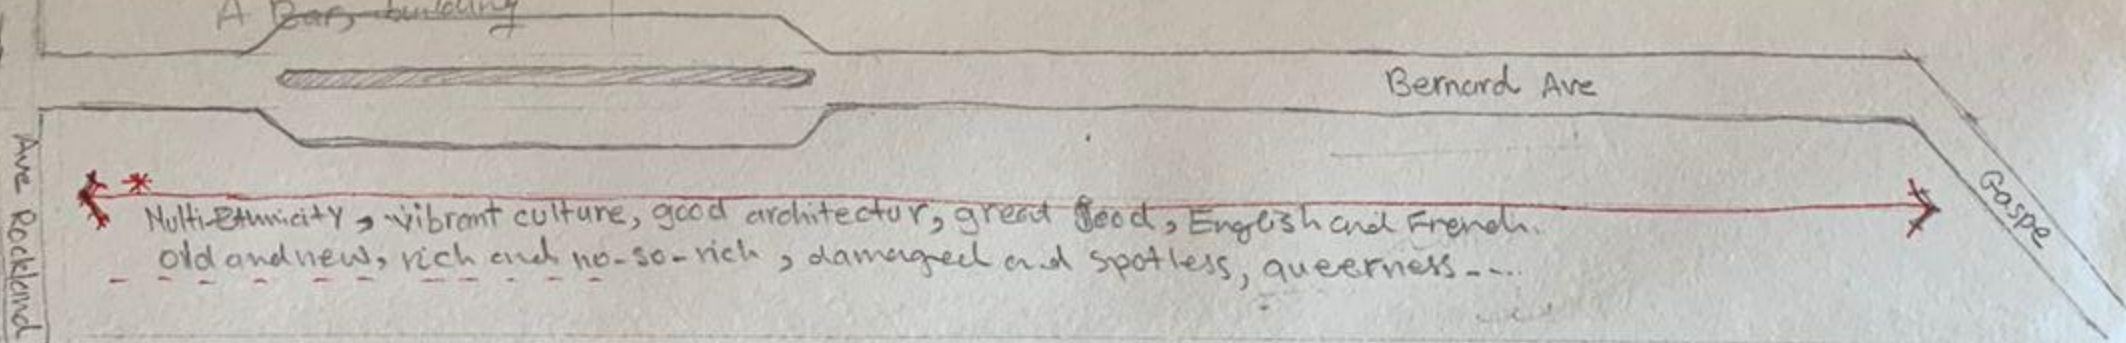 A Bar, building
Bernard Ave
Ave Rockland
Gaspe
Multi-Ethnicity, vibrant culture, good architectur, great food, English and French.
old and new, rich and no-so-rich, damaged and spotless, queerness-....